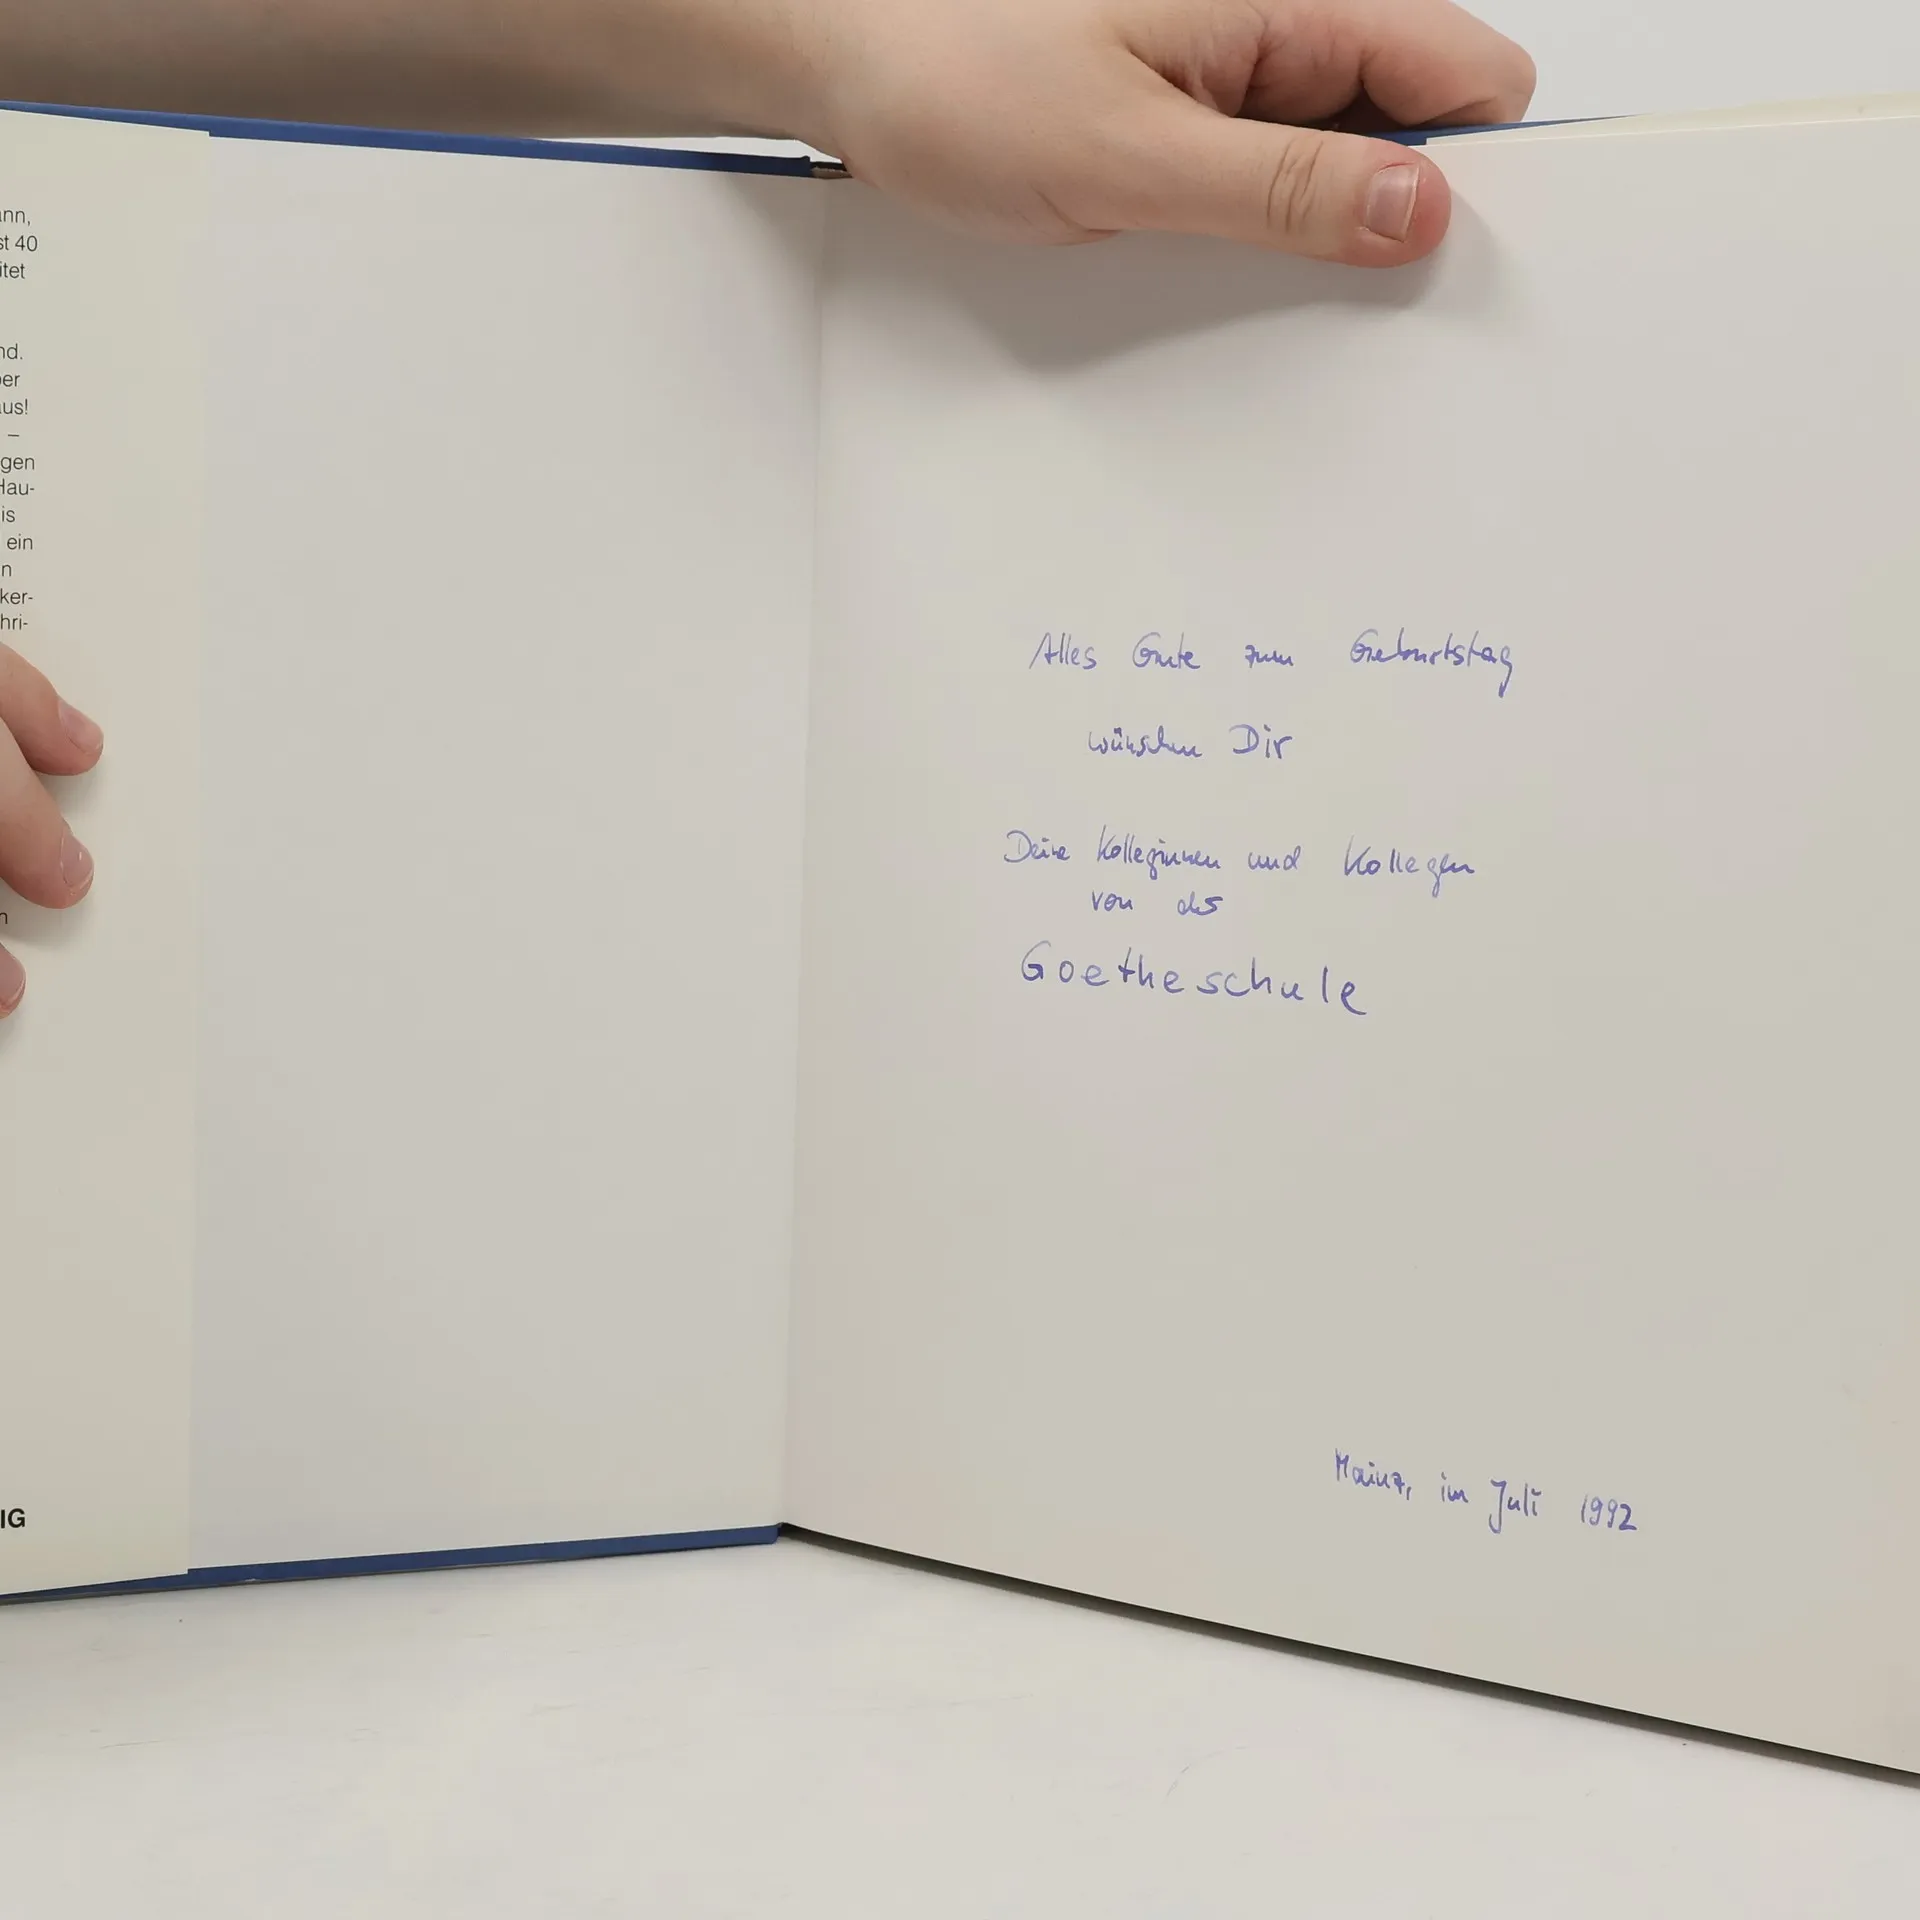 ann,
st 40
itet
nd.
ber
aus!
–
gen
Hau-
is
ein
n
ker-
hri-
n
IG
Alles Gute zum Geburtstag
wünschen Dir
Deine Kolleginnen und Kollegen
von der
Goetheschule
Mainz, im Juli 1992